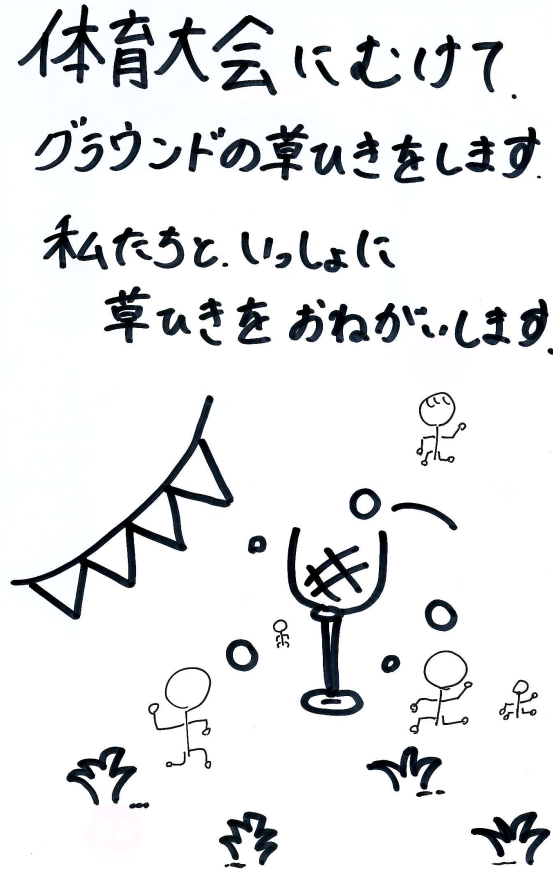 体育大会にむけて.
グラウンドの草ひきをします.
私たちと.いっしょに
草ひきをおねがいします.